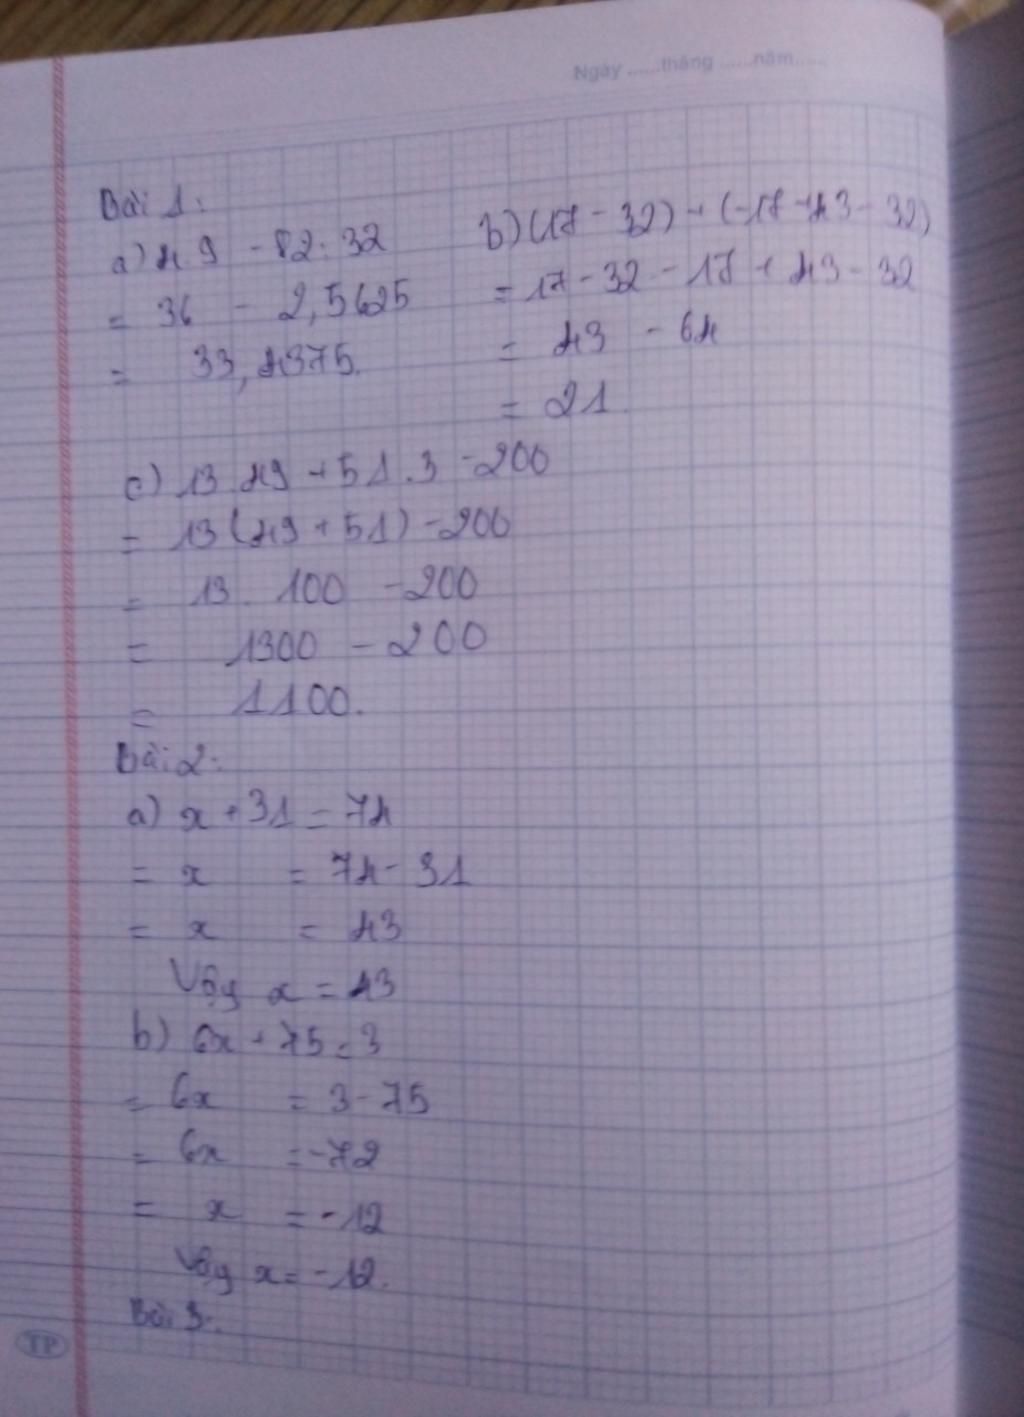 Ngày ......tháng ......năm......
Bài 1:
a) 4 9 - 82 : 32
= 36 - 2,5625
= 33,4375.
b) (17 - 32) + (-17 + 43 - 32)
= 17 - 32 - 17 + 43 - 32
= 43 - 64
= 21
c) 13 . 49 + 51 . 3 - 200
= 13 (49 + 51) - 200
= 13 . 100 - 200
= 1300 - 200
= 1100.
Bài 2:
a) x + 31 = 74
= x = 74 - 31
= x = 43
Vậy x = 43
b) 6x + 75 = 3
= 6x = 3 - 75
= 6x = -72
= x = -12
Vậy x = -12.
Bài 3:
TP